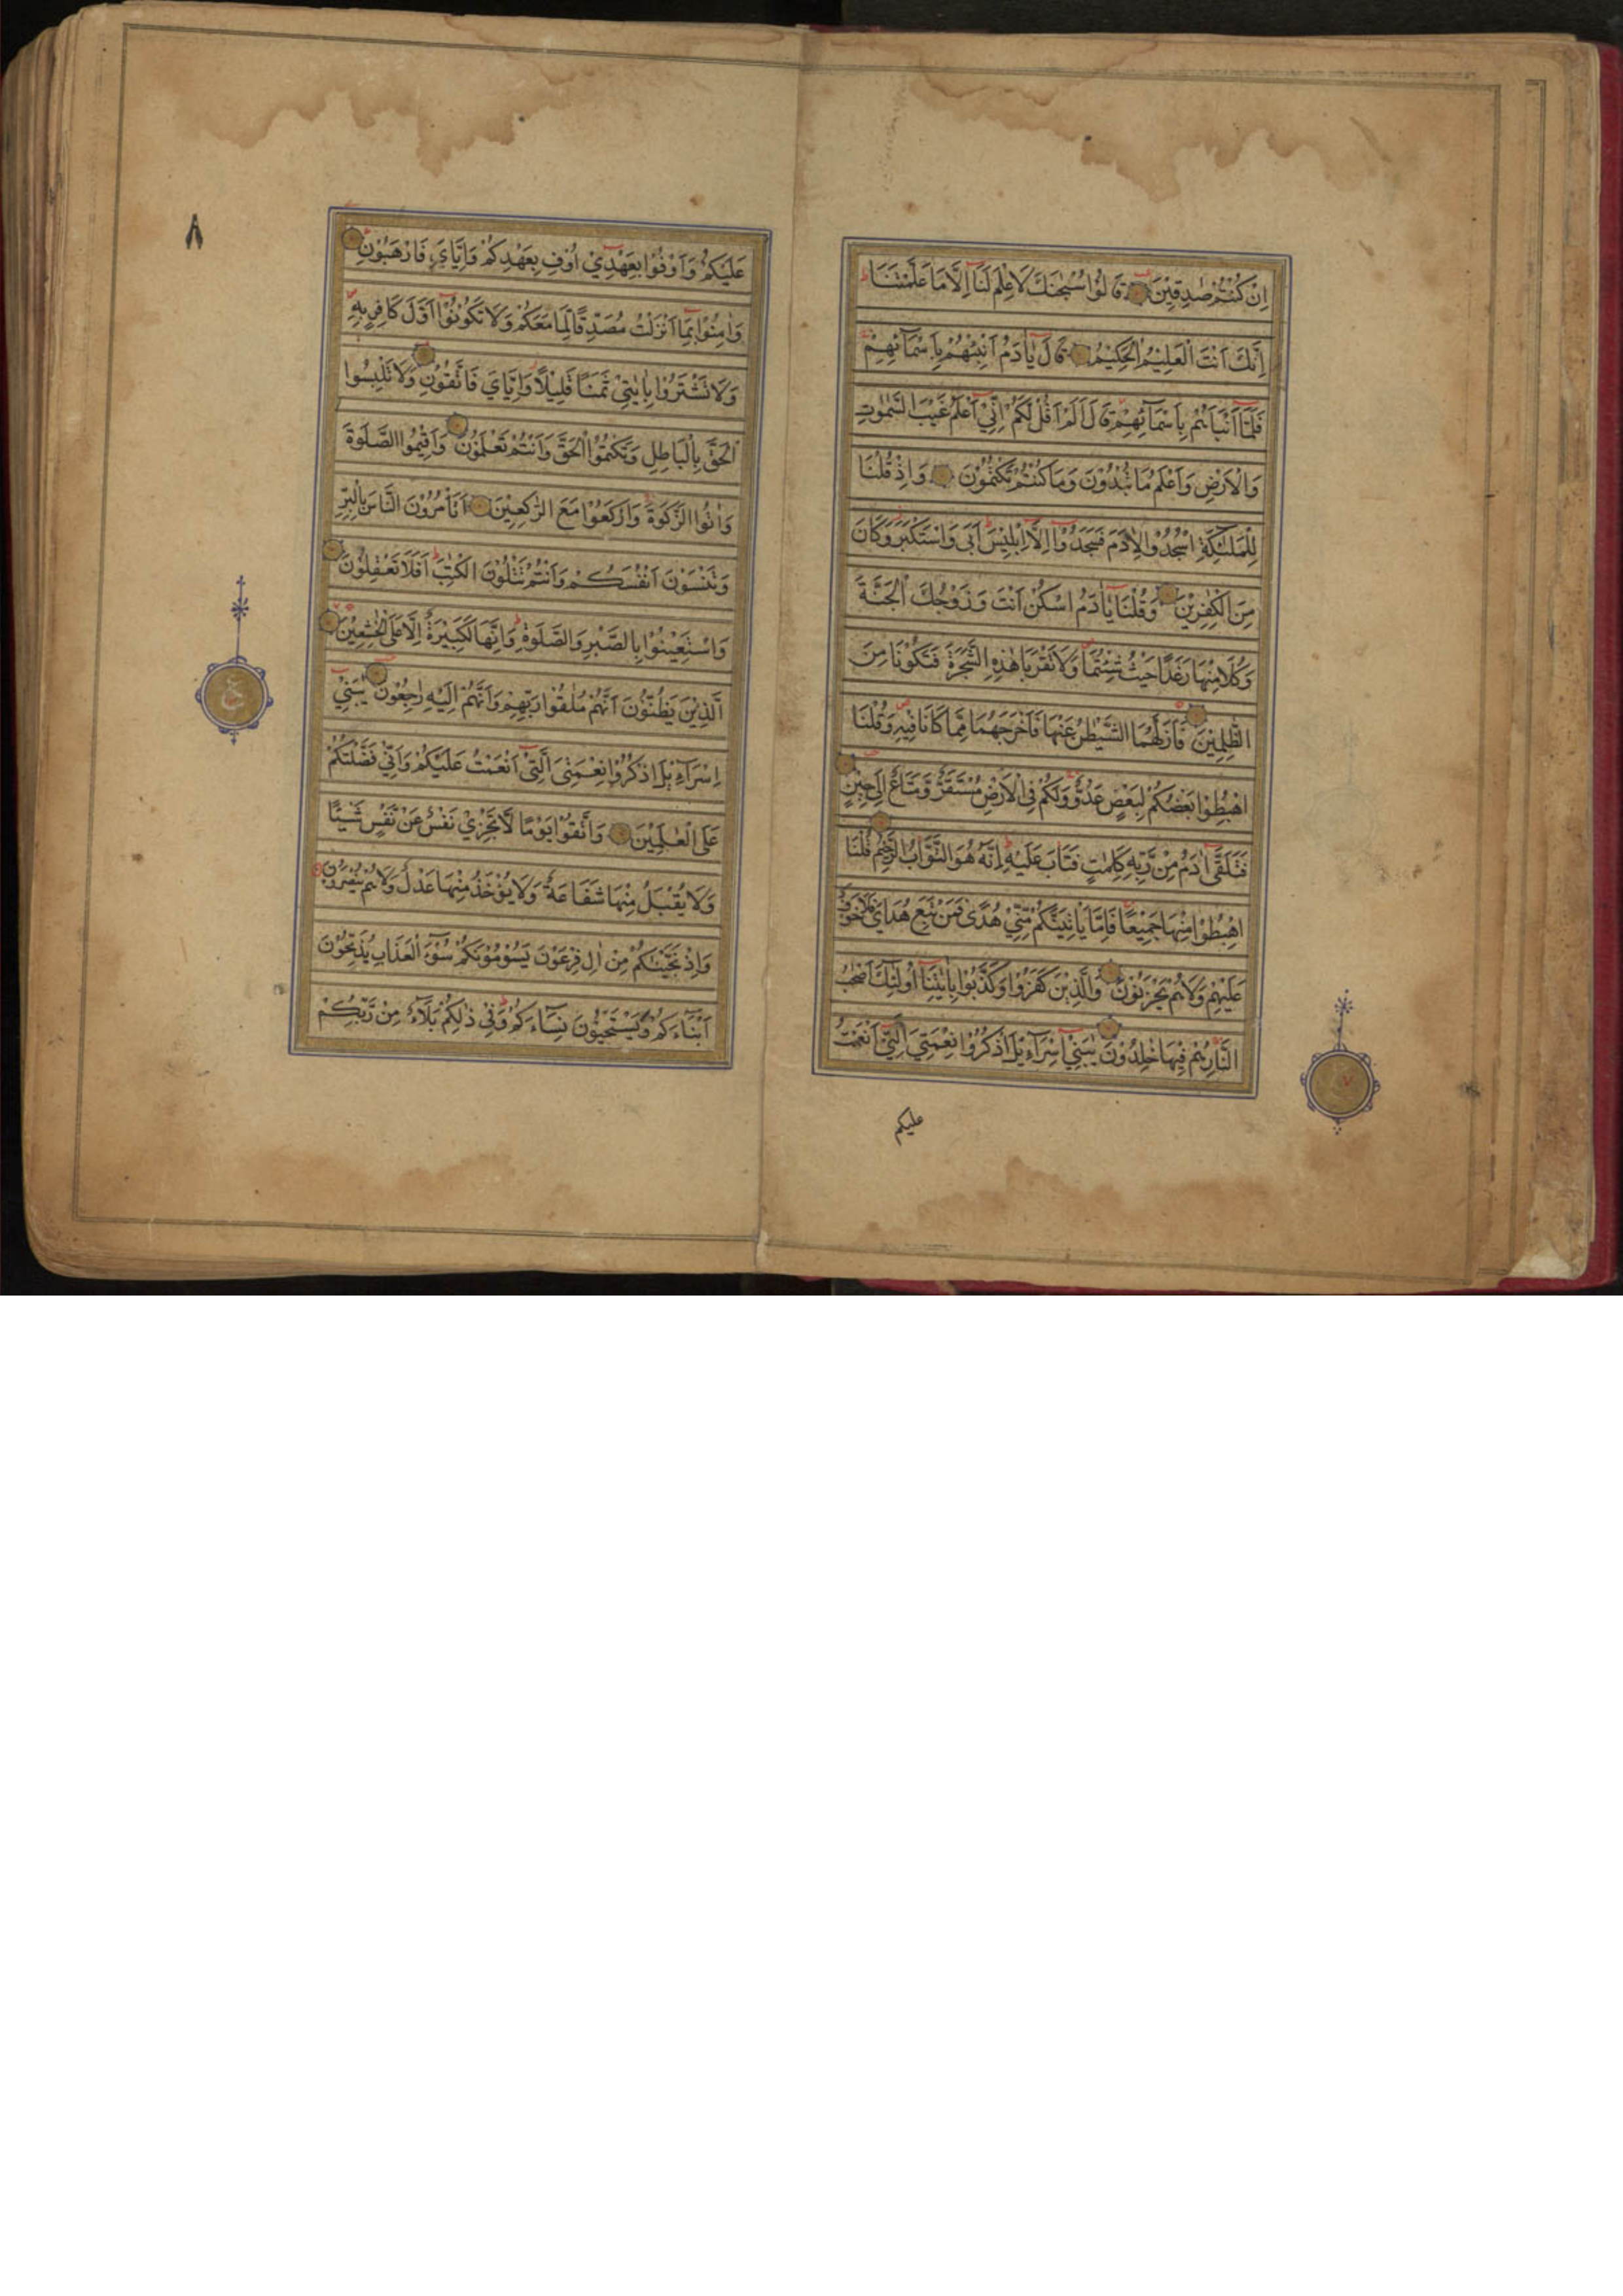 اِنْ كُنْتُمْ صٰدِقِيْنَ قَالُوْا سُبْحٰنَكَ لَا عِلْمَ لَنَآ اِلَّا مَا عَلَّمْتَنَا
اِنَّكَ اَنْتَ الْعَلِيْمُ الْحَكِيْمُ قَالَ يٰٓاٰدَمُ اَنْبِئْهُمْ بِاَسْمَآئِهِمْ
فَلَمَّآ اَنْبَاَهُمْ بِاَسْمَآئِهِمْ قَالَ اَلَمْ اَقُلْ لَكُمْ اِنِّيْٓ اَعْلَمُ غَيْبَ السَّمٰوٰتِ
وَالْاَرْضِ وَاَعْلَمُ مَا تُبْدُوْنَ وَمَا كُنْتُمْ تَكْتُمُوْنَ وَاِذْ قُلْنَا
لِلْمَلٰٓئِكَةِ اسْجُدُوْا لِاٰدَمَ فَسَجَدُوْٓا اِلَّآ اِبْلِيْسَ اَبٰى وَاسْتَكْبَرَ وَكَانَ
مِنَ الْكٰفِرِيْنَ وَقُلْنَا يٰٓاٰدَمُ اسْكُنْ اَنْتَ وَزَوْجُكَ الْجَنَّةَ
وَكُلَا مِنْهَا رَغَدًا حَيْثُ شِئْتُمَا وَلَا تَقْرَبَا هٰذِهِ الشَّجَرَةَ فَتَكُوْنَا مِنَ
الظّٰلِمِيْنَ فَاَزَلَّهُمَا الشَّيْطٰنُ عَنْهَا فَاَخْرَجَهُمَا مِمَّا كَانَا فِيْهِ وَقُلْنَا
اهْبِطُوْا بَعْضُكُمْ لِبَعْضٍ عَدُوٌّ وَلَكُمْ فِى الْاَرْضِ مُسْتَقَرٌّ وَّمَتَاعٌ اِلٰى حِيْنٍ
فَتَلَقّٰٓى اٰدَمُ مِنْ رَّبِّهٖ كَلِمٰتٍ فَتَابَ عَلَيْهِ اِنَّهٗ هُوَ التَّوَّابُ الرَّحِيْمُ قُلْنَا
اهْبِطُوْا مِنْهَا جَمِيْعًا فَاِمَّا يَاْتِيَنَّكُمْ مِّنِّيْ هُدًى فَمَنْ تَبِعَ هُدَايَ فَلَا خَوْفٌ
عَلَيْهِمْ وَلَا هُمْ يَحْزَنُوْنَ وَالَّذِيْنَ كَفَرُوْا وَكَذَّبُوْا بِاٰيٰتِنَآ اُولٰٓئِكَ اَصْحٰبُ
النَّارِ هُمْ فِيْهَا خٰلِدُوْنَ يٰبَنِيْٓ اِسْرَآءِيْلَ اذْكُرُوْا نِعْمَتِيَ الَّتِيْٓ اَنْعَمْتُ
عليكم
٧
٨
عَلَيْكُمْ وَاَوْفُوْا بِعَهْدِيْٓ اُوْفِ بِعَهْدِكُمْ وَاِيَّايَ فَارْهَبُوْنِ
وَاٰمِنُوْا بِمَآ اَنْزَلْتُ مُصَدِّقًا لِّمَا مَعَكُمْ وَلَا تَكُوْنُوْٓا اَوَّلَ كَافِرٍ بِهٖ
وَلَا تَشْتَرُوْا بِاٰيٰتِيْ ثَمَنًا قَلِيْلًا وَاِيَّايَ فَاتَّقُوْنِ وَلَا تَلْبِسُوا
الْحَقَّ بِالْبَاطِلِ وَتَكْتُمُوا الْحَقَّ وَاَنْتُمْ تَعْلَمُوْنَ وَاَقِيْمُوا الصَّلٰوةَ
وَاٰتُوا الزَّكٰوةَ وَارْكَعُوْا مَعَ الرّٰكِعِيْنَ اَتَاْمُرُوْنَ النَّاسَ بِالْبِرِّ
وَتَنْسَوْنَ اَنْفُسَكُمْ وَاَنْتُمْ تَتْلُوْنَ الْكِتٰبَ اَفَلَا تَعْقِلُوْنَ
وَاسْتَعِيْنُوْا بِالصَّبْرِ وَالصَّلٰوةِ وَاِنَّهَا لَكَبِيْرَةٌ اِلَّا عَلَى الْخٰشِعِيْنَ
الَّذِيْنَ يَظُنُّوْنَ اَنَّهُمْ مُّلٰقُوْا رَبِّهِمْ وَاَنَّهُمْ اِلَيْهِ رٰجِعُوْنَ يٰبَنِيْٓ
اِسْرَآءِيْلَ اذْكُرُوْا نِعْمَتِيَ الَّتِيْٓ اَنْعَمْتُ عَلَيْكُمْ وَاَنِّيْ فَضَّلْتُكُمْ
عَلَى الْعٰلَمِيْنَ وَاتَّقُوْا يَوْمًا لَّا تَجْزِيْ نَفْسٌ عَنْ نَّفْسٍ شَيْئًا
وَّلَا يُقْبَلُ مِنْهَا شَفَاعَةٌ وَّلَا يُؤْخَذُ مِنْهَا عَدْلٌ وَّلَا هُمْ يُنْصَرُوْنَ
وَاِذْ نَجَّيْنٰكُمْ مِّنْ اٰلِ فِرْعَوْنَ يَسُوْمُوْنَكُمْ سُوْٓءَ الْعَذَابِ يُذَبِّحُوْنَ
اَبْنَآءَكُمْ وَيَسْتَحْيُوْنَ نِسَآءَكُمْ وَفِيْ ذٰلِكُمْ بَلَآءٌ مِّنْ رَّبِّكُمْ